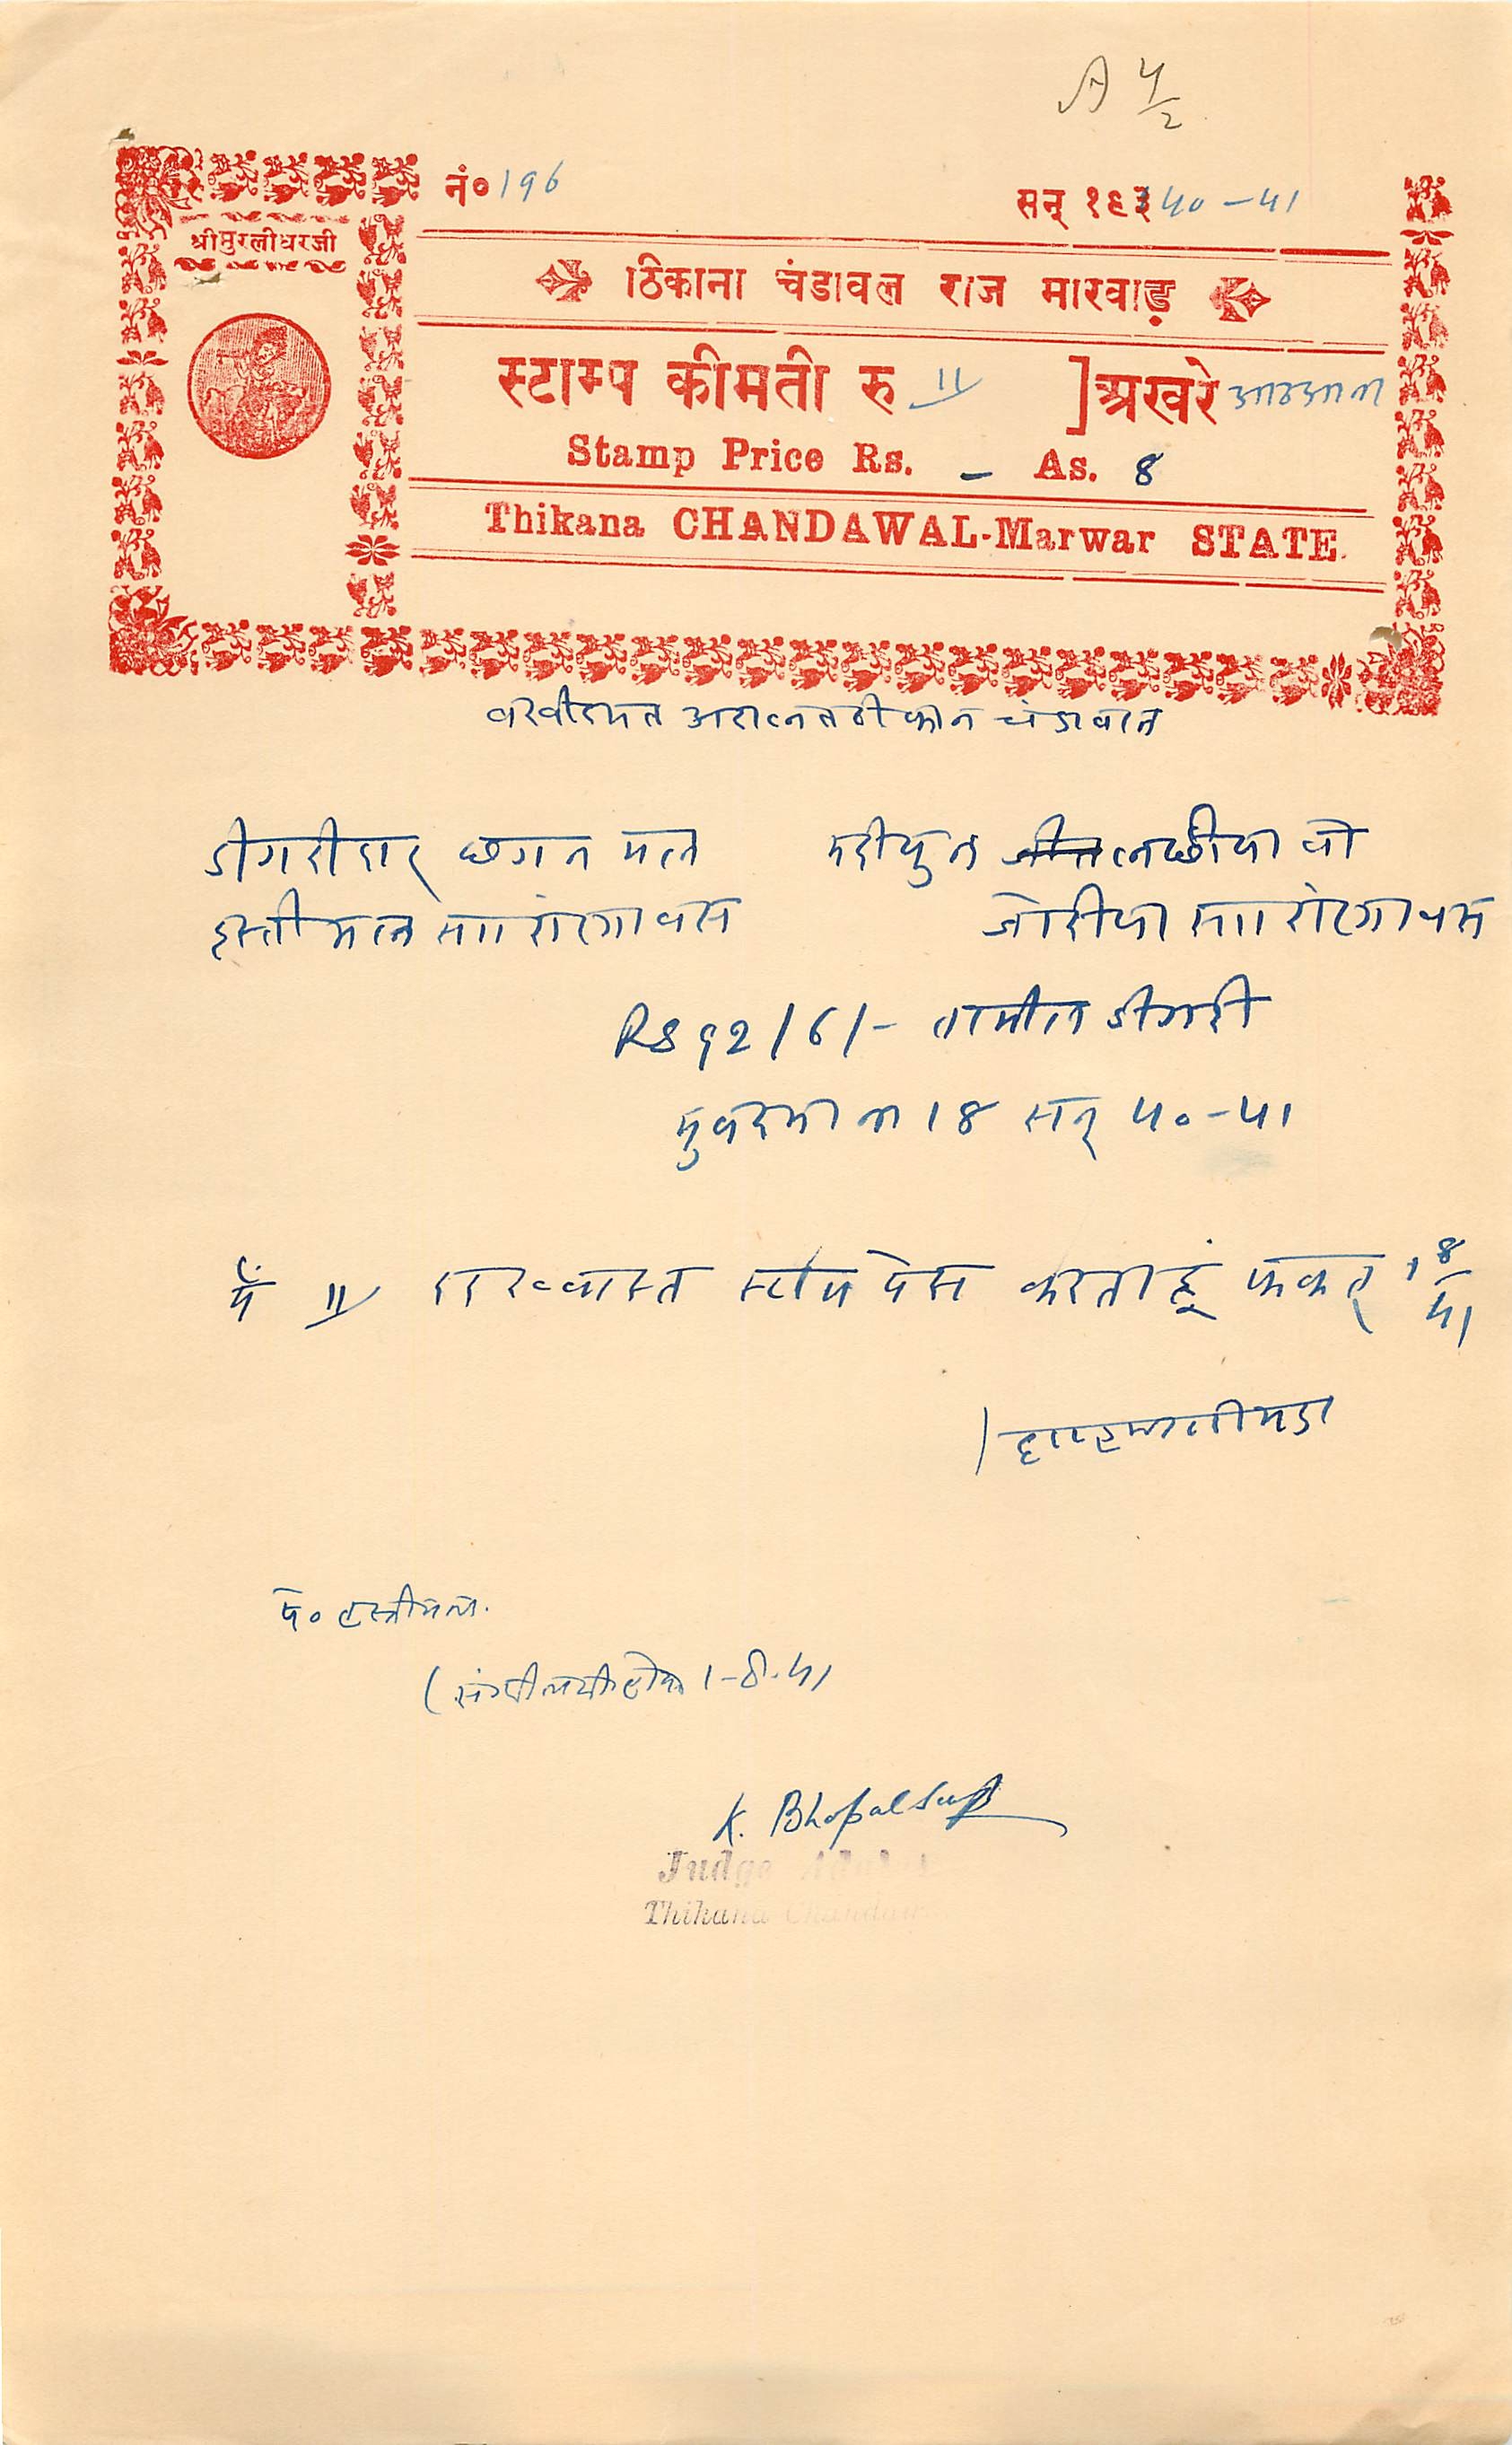 A 4/2
नं० 196
सन् १९३ 40-41
श्रीमुरलीधरजी
ठिकाना चंडावल राज मारवाड़
स्टाम्प कीमती रु ॥ ] अखरे आठ आना
Stamp Price Rs. - As. 8
Thikana CHANDAWAL-Marwar STATE.
अदालत ठीकाना चंडावल
डीगरीदार छगन मल मदीयुन लछीया वो
हस्तीमल सा॥ जोरीया सा॥
Rs 92/6/- तामील डीगरी
मुकदमा न 18 सन् 40-41
में ॥ दरख्वास्त स्टांप पेस करता हूं फकत् 1 8/41
द० हस्तीमल.
1-8-41
K. Bhopal Singh
Judge
Thikana Chandawal